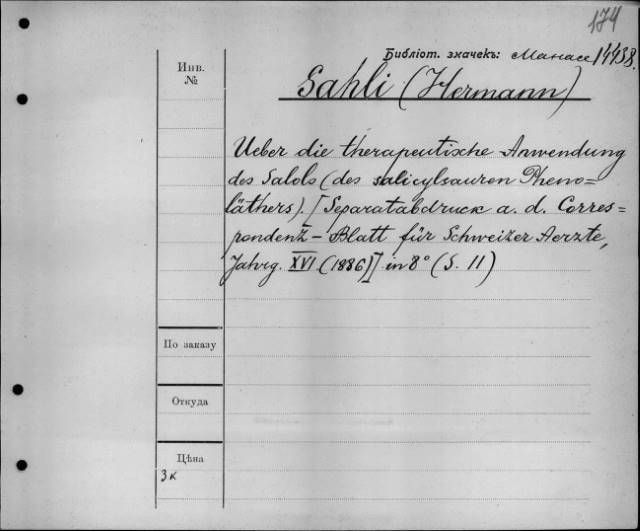 174
Библіот. значекъ: Манасе 14438.
Инв.
№
Sahli (Hermann)
Ueber die therapeutische Anwendung
des Salols (des salicylsauren Pheno=
läthers). [Separatabdruck a. d. Corres=
pondenz-Blatt für Schweizer Aerzte,
Jahrg. XVI (1886)] in 8° (S. 11)
По заказу
Откуда
Цѣна
3 к